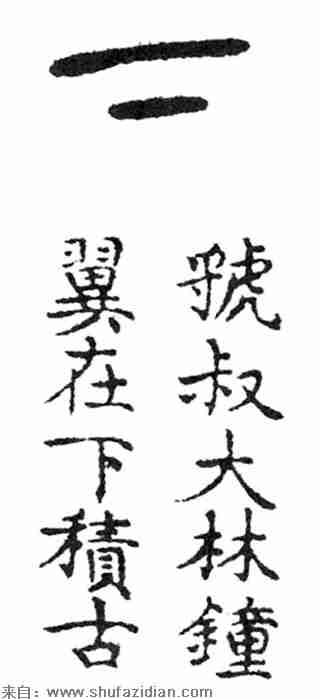 𠄟
虢叔大林鐘
翼在下積古
来自：www.shufazidian.com